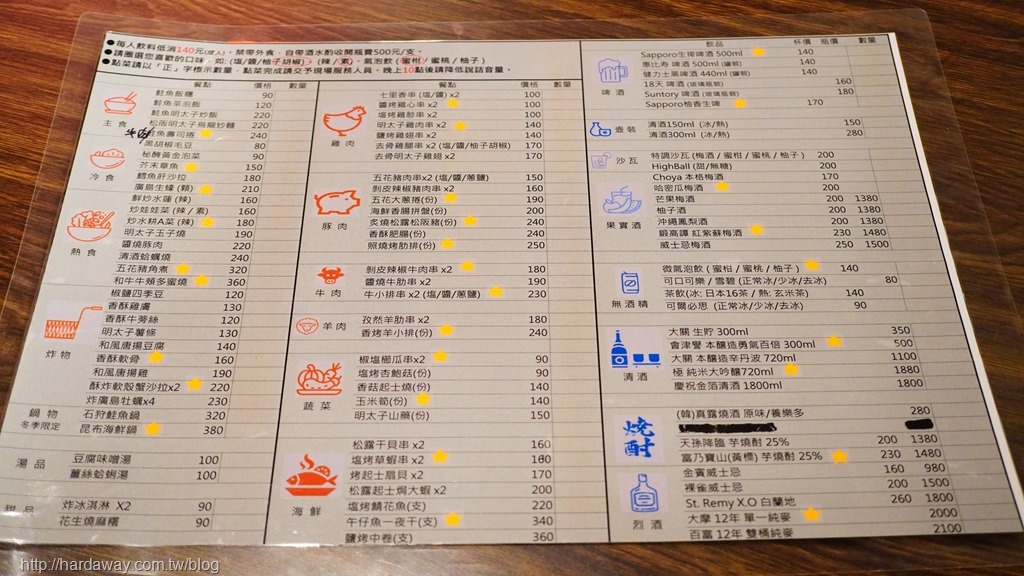 ●每人飲料低消140元(成人)。禁帶外食，自帶酒水酌收開瓶費500元/支。
●請圈選您喜歡的口味，如: (塩/醬/柚子胡椒)、(辣/素)、氣泡飲 ( 蜜柑 / 蜜桃 / 柚子 )
●點菜請以「正」字標示數量，點菜完成請交予現場服務人員。晚上10點後請降低說話音量。
餐點 價格 數量
主食
鮭魚飯糰 90
鮭魚茶泡飯 120
鮭魚明太子炒飯 220
松阪明太子烏龍炒麵 220
鮭魚壽司捲 240
冷食
黑胡椒毛豆 80
秘醃黃金泡菜 90
芥末章魚 150
鱈魚肝沙拉 180
廣島生蠔 (顆) 210
熱食
鮮炒水蓮 (辣) 160
炒娃娃菜 (辣 / 素) 160
炒水耕A菜 (辣) 180
明太子玉子燒 190
醬燒豚肉 220
清酒蛤蠣燒 240
五花豬角煮 320
和牛牛頰多蜜燒 360
炸物
椒鹽四季豆 120
香酥雞膚 130
香酥牛蒡絲 120
明太子薯條 130
和風唐揚豆腐 140
香酥軟骨 160
和風唐揚雞 190
酥炸軟殼蟹沙拉x2 220
炸廣島牡蠣x4 230
鍋物
冬季限定
石狩鮭魚鍋 320
昆布海鮮鍋 380
湯品
豆腐味噌湯 100
薑絲蛤蜊湯 100
甜品
炸冰淇淋 X2 90
花生燒麻糬 90
餐點 價格 數量
雞肉
七里香串 (塩/醬) x2 90
醬烤雞心串 x2 90
塩烤雞胗串 x2 90
明太子雞肉串 x2 140
鹽烤雞翅串 x2 140
去骨雞腿串 x2 (塩/醬/柚子胡椒) 170
去骨明太子雞翅 x2 170
豚肉
五花豬肉串 x2 (塩/醬/蔥鹽) 150
剝皮辣椒豬肉串 x2 160
五花大蔥捲(份) 190
海鮮香腸拼盤(份) 200
炙燒松露松阪豬(份) 240
香酥肥腸(份) 240
照燒烤肋排(份) 250
牛肉
剝皮辣椒牛肉串 x2 180
醬燒牛肋串 x2 190
牛小排串 x2 (塩/醬/蔥鹽) 230
羊肉
孜然羊肋串 x2 180
香烤羊小排(份) 240
蔬菜
椒塩櫛瓜串x2 90
塩烤杏鮑菇(份) 90
香菇起士燒(份) 140
玉米筍(份) 140
明太子山藥(份) 150
海鮮
松露干貝串 x2 160
塩烤草蝦串 x2 180
烤起士扇貝 x2 170
松露起士焗大蝦 x2 200
塩烤鯖花魚(支) 220
午仔魚一夜干(支) 340
鹽烤中卷(支) 360
飲品 杯價 瓶價 數量
Sapporo生啤啤酒 500ml 140
惠比寿 啤酒 500ml (罐裝) 140
健力士黑啤酒 440ml (罐裝) 140
18天 啤酒 (玻璃瓶裝) 160
Suntory 啤酒 (玻璃瓶裝) 180
Sapporo柚香生啤 170
壺裝
清酒150ml (冰/熱) 150
清酒300ml (冰/熱) 280
沙瓦
特調沙瓦 (梅酒 / 蜜柑 / 蜜桃 / 柚子) 200
HighBall (甜/無糖) 200
果實酒
Choya 本格梅酒 170
哈密瓜梅酒 200
芒果梅酒 200 1380
柚子酒 200 1380
沖繩鳳梨酒 200 1380
鍛高譚 紅紫蘇梅酒 230 1480
威士忌梅酒 250 1500
無酒精
微氣泡飲 ( 蜜柑 / 蜜桃 / 柚子 ) 140
可口可樂 / 雪碧 (正常冰/少冰/去冰) 80
茶飲(冰: 日本16茶 / 熱: 玄米茶) 140
可爾必思 (正常冰/少冰/去冰) 90
清酒
大關 生貯 300ml 350
會津譽 本釀造勇氣百倍 300ml 500
大關 本釀造辛丹波 720ml 1100
極 純米大吟釀720ml 1880
慶祝金箔清酒 1800ml 1800
焼酎
(韓)真露燒酒 原味/養樂多 280
天孫降臨 芋燒酎 25% 200 1380
富乃寶山(黃標) 芋燒酎 25% 230 1480
烈酒
金賓威士忌 160 980
裸雀威士忌 200 1500
St. Remy X.O 白蘭地 260 1800
大摩 12年 單一純麥 2000
百富 12年 雙桶純麥 2100
http://hardaway.com.tw/blog